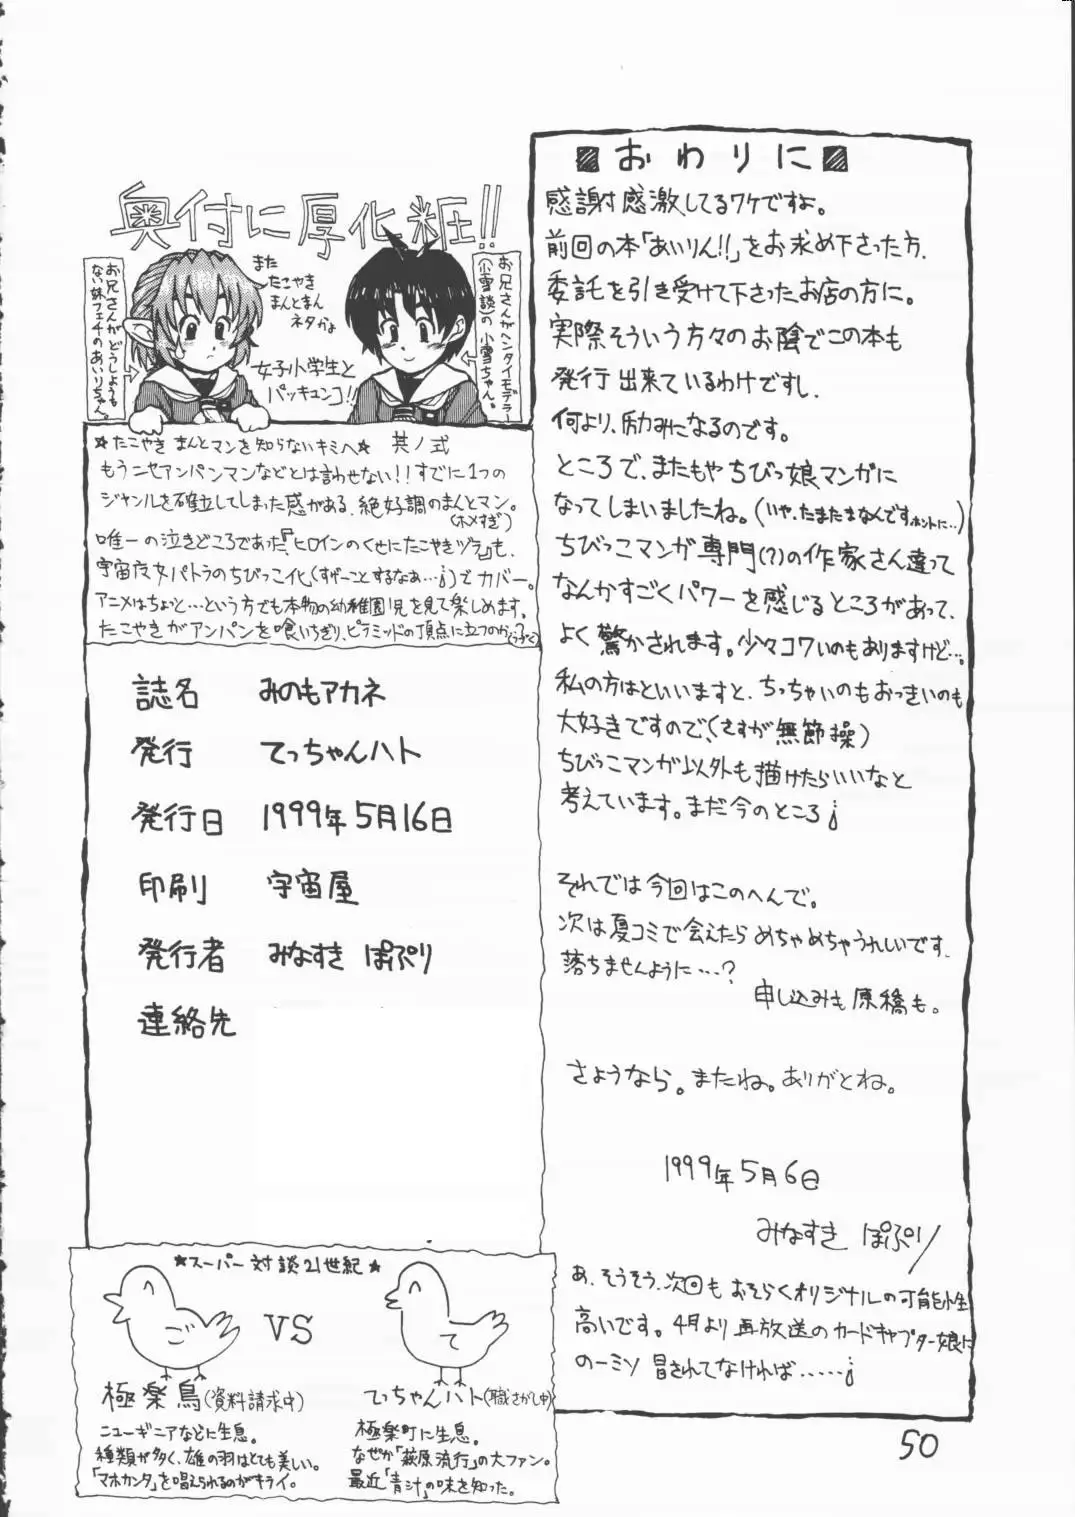 ■おわりに■
感謝感激してるワケですよ。
前回の本「あいりん!!」をお求め下さった方、
委託を引き受けて下さったお店の方に。
実際そういう方々のお陰でこの本も
発行出来ているわけですし、
何より、励みになるのです。
ところで、またもやちびっ娘マンガに
なってしまいましたね。(いや、たまたまなんですホントに…)
ちびっこマンガ専門(?)の作家さん達って
なんかすごくパワーを感じるところがあって、
よく驚かされます。少々コワいのもありますけど…。
私の方はといいますと、ちっちゃいのもおっきいのも
大好きですので、(さすが無節操)
ちびっこマンガ以外も描けたらいいなと
考えています。まだ今のところ¡
それでは今回はこのへんで。
次は夏コミで会えたらめちゃめちゃうれしいです。
落ちませんように…?
申し込みも原稿も。
さようなら。またね。ありがとね。
1999年5月6日
みなすき ぽぷり
あ、そうそう、次回もおそらくオリジナルの可能性
高いです。4月より再放送のカードキャプター娘に
のーミソ冒されてなければ……¡
50
奥付に厚化粧!!
お兄さんがどうしようも
ない妹フェチのあいりちゃん。
また
たこやき
まんとまん
ネタかよ
女子小学生と
パッキュンコ!!
お兄さんがヘンタイモデラー
(小雪談)の小雪ちゃん。
★たこやきまんとマンを知らないキミへ★ 其ノ弐
もうニセアンパンマンなどとは言わせない!!すでに1つの
ジャンルを確立してしまった感がある、絶好調のまんとマン。
(ホメすぎ)
唯一の泣きどころであった『ヒロインのくせにたこやきヅラ』も、
宇宙女パトラのちびっこ化(すげーことするなあ…¡)でカバー。
アニメはちょっと…という方でも本物の幼稚園児を見て楽しめます。
たこやきがアンパンを喰いちぎり、ピラミッドの頂点に立つのか?
誌名 みのもアカネ
発行 てっちゃんハト
発行日 1999年5月16日
印刷 宇宙屋
発行者 みなすき ぽぷり
連絡先
★スーパー対談21世紀★
ご VS て
極楽鳥(資料請求中)
ニューギニアなどに生息。
種類が多く、雄の羽はとても美しい。
「マホカンタ」を唱えられるのがキライ。
てっちゃんハト(職さがし中)
極楽町に生息。
なぜか「萩原流行」の大ファン。
最近「青汁」の味を知った。